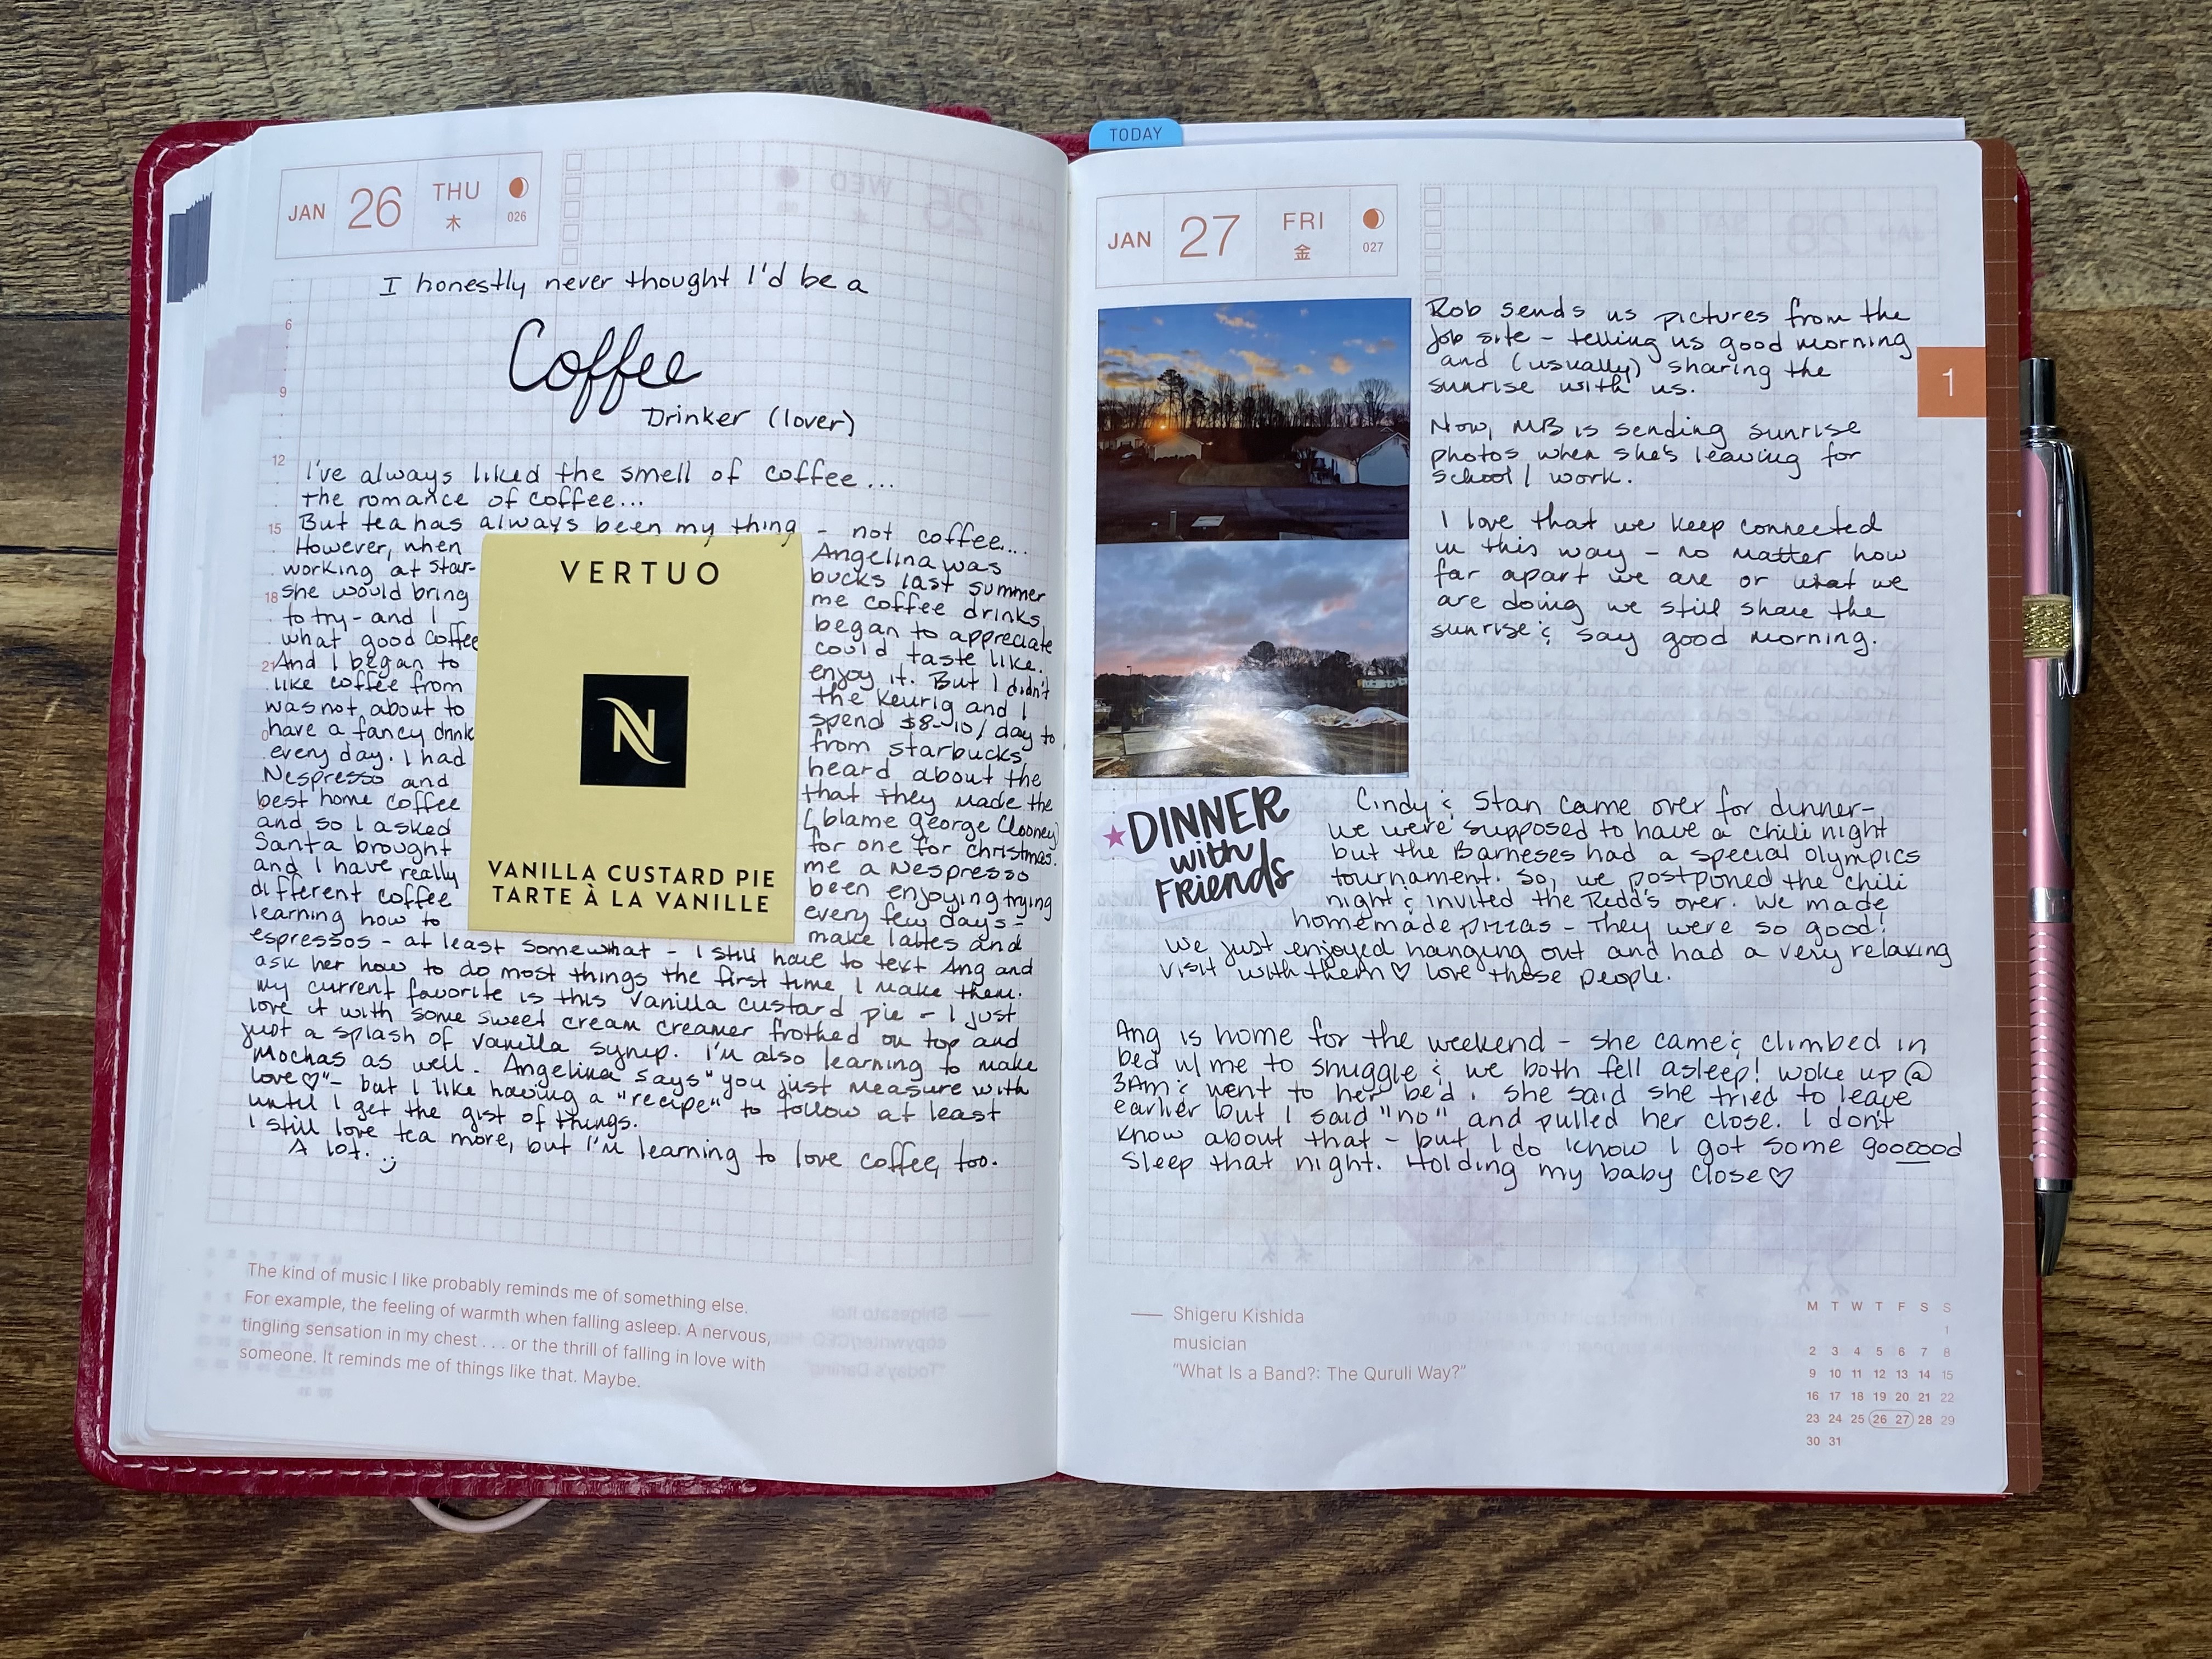 JAN 26 THU 木 026
I honestly never thought I'd be a
Coffee
Drinker (lover)
6
9
12
15
18
21
0
I've always liked the smell of coffee...
the romance of coffee...
But tea has always been my thing - not coffee...
However, when Angelina was
working at Star- bucks last summer
she would bring me coffee drinks
to try - and I began to appreciate
what good coffee could taste like.
And I began to enjoy it. But I didn't
like coffee from the Keurig and I
was not about to spend $8-10/day to
have a fancy drink from Starbucks
every day. I had heard about the
Nespresso and that they made the
best home coffee (blame George Clooney)
and so I asked for one for Christmas.
Santa brought me a Nespresso
and I have really been enjoying trying
different coffee every few days -
learning how to make lattes and
espressos - at least somewhat - I still have to text Ang and
ask her how to do most things the first time I make them.
My current favorite is this vanilla custard pie - I just
love it with some sweet cream creamer frothed on top and
just a splash of vanilla syrup. I'm also learning to make
Mochas as well. Angelina says "you just measure with
love♡" - but I like having a "recipe" to follow at least
until I get the gist of things.
I still love tea more, but I'm learning to love coffee, too.
A lot. :)
VERTUO
N
VANILLA CUSTARD PIE
TARTE À LA VANILLE
The kind of music I like probably reminds me of something else.
For example, the feeling of warmth when falling asleep. A nervous,
tingling sensation in my chest . . . or the thrill of falling in love with
someone. It reminds me of things like that. Maybe.
TODAY
JAN 27 FRI 金 027
1
Rob sends us pictures from the
job site - telling us good morning
and (usually) sharing the
sunrise with us.
Now, MB is sending sunrise
photos when she's leaving for
school / work.
I love that we keep connected
in this way - no matter how
far apart we are or what we
are doing we still share the
sunrise & say good morning.
★DINNER
with
FRIENDS
Cindy & Stan came over for dinner-
we were supposed to have a chili night
but the Barneses had a special olympics
tournament. So, we postponed the chili
night & invited the Redd's over. We made
homemade pizzas - They were so good!
We just enjoyed hanging out and had a very relaxing
visit with them♡ love those people.
Ang is home for the weekend - she came & climbed in
bed w/ me to snuggle & we both fell asleep! Woke up @
3AM & went to her bed. She said she tried to leave
earlier but I said "no" and pulled her close. I don't
know about that - but I do know I got some gooooood
sleep that night. Holding my baby close♡
— Shigeru Kishida
musician
"What Is a Band?: The Quruli Way?"
M T W T F S S
1
2 3 4 5 6 7 8
9 10 11 12 13 14 15
16 17 18 19 20 21 22
23 24 25 26 27 28 29
30 31